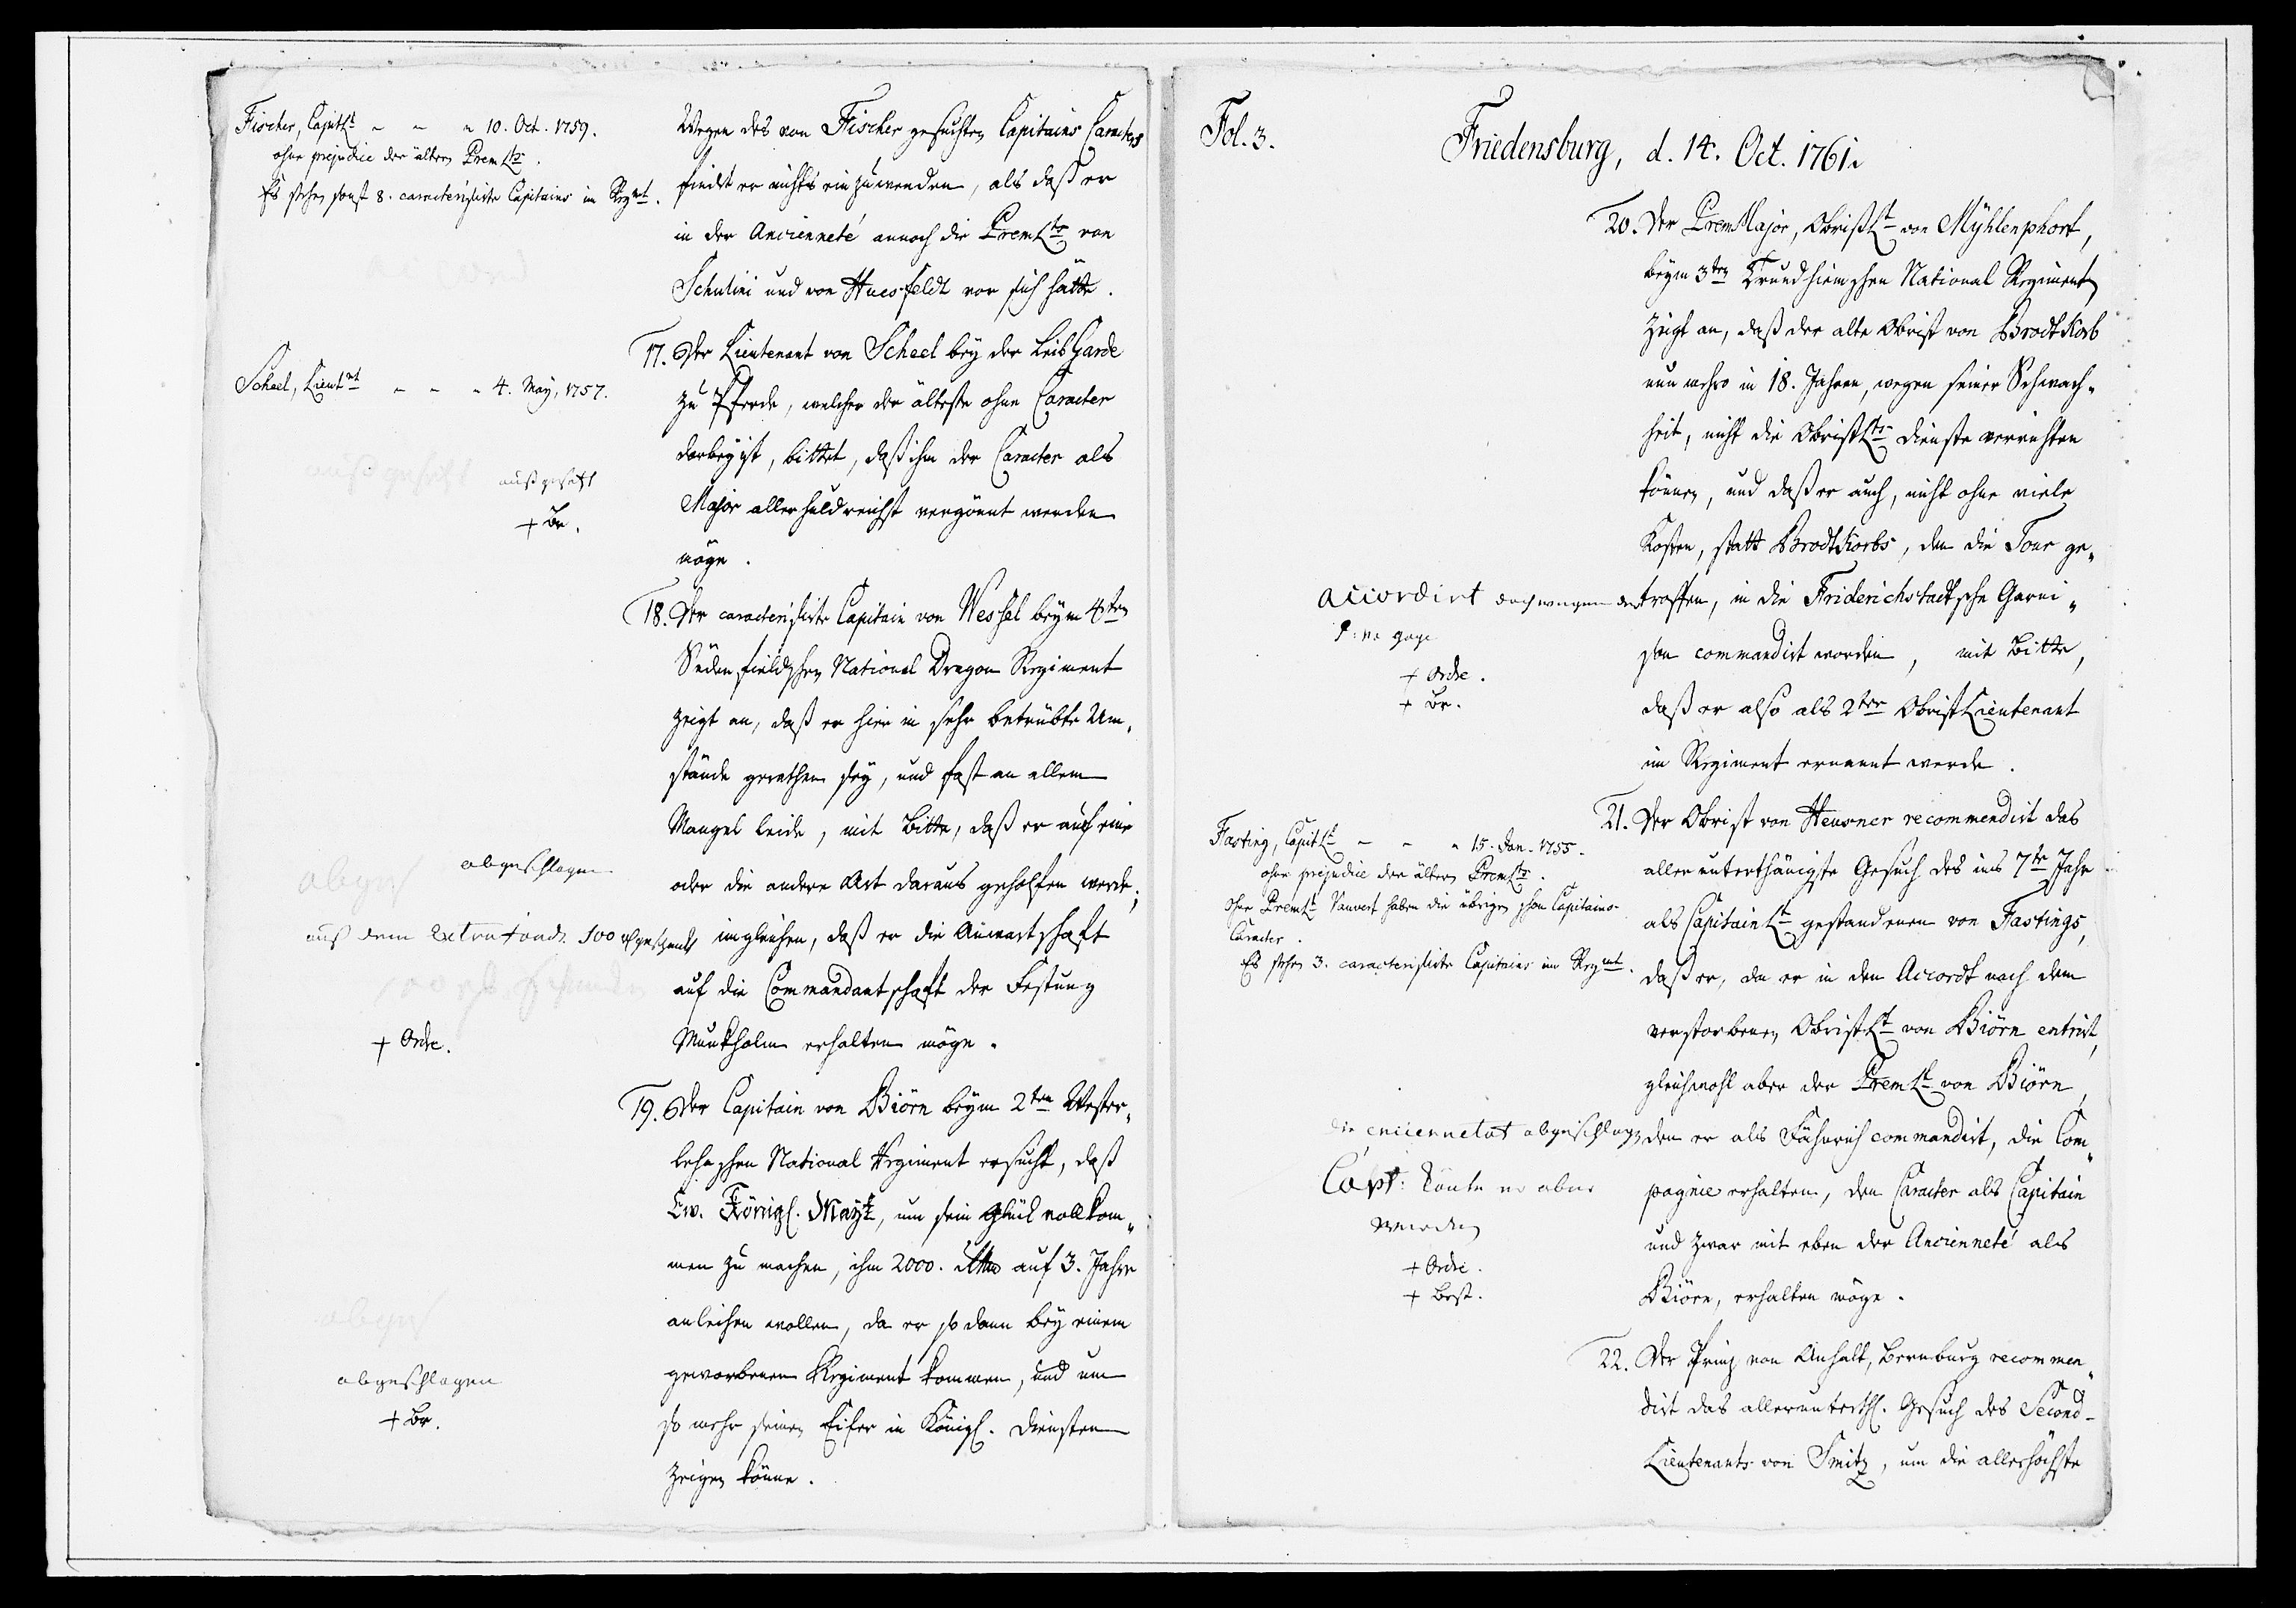 Fischer, CapitLt - - - 10. Oct. 1759.
ohne prejudice der ältern PremLts.
Es stehen sonst 8. caracterisirte Capitains im Regmt.
Scheel, Lieutnt - - - 4. May, 1757.
ausgesetzt
+ Br.
abgeschlagen
aus dem extra fonds 100 rthlr geschenkt
+ Ordre.
abgeschlagen
+ Br.
Wegen des von Fischer gesuchten Capitains Caracters
findet er nichts einzuwenden, als daß er
in der Ancienneté annoch die PremLts von
Schulini und von Huesfeldt vor sich hätte.
17. Der Lieutenant von Scheel bey der LeibGarde
zu Pferde, welcher der älteste ohne Caracter
darbey ist, bittet, daß ihm der Caracter als
Major allerhuldreichst vergönnt werden
möge.
18. Der caracterisirte Capitain von Wessel beym 4ten
Südenfieldschen National Dragon Regiment
zeigt an, daß er hier in sehr betrübte Um-
stände gerathen sey, und fast an allem
Mangel leide, mit Bitte, daß er auf eine
oder die andere Art daraus geholfen werde;
imgleichen, daß er die Anwartschaft
auf die Commandantschaft der Festung
Munkholm erhalten möge.
19. Der Capitain von Biörn beym 2ten Wester-
lehnschen National Regiment ersucht, daß
Ew. Königl. Mayt, um sein Glück vollkom-
men zu machen, ihm 2000. Rthlr auf 3. Jahre
anleihen wollen, da er so dann bey einem
geworbenen Regiment kommen, und um
so mehr seinen Eifer in Königl. Diensten
zeigen könne.
Fol. 3.
Friedensburg, d. 14. Oct. 1761.
accordirt doch wegen der
gage
+ Ordre.
+ Br.
Fasting, CapitLt - - - 15. Jan. 1755.
ohne prejudice der ältern PremLts.
Ohne PremLt Vauvert haben die übrigen schon Capitains-
Caracter.
Es stehen 3. caracterisirte Capitains im Regmt.
die encienetet abgeschlagen
Capt: könte er aber
werden
+ Ordre.
+ Best.
20. Der PremMajor, ObristLt von Mühlenphort,
beym 3ten Trundhiemschen National Regiment
zeigt an, daß der alte Obrist von BrodtKorb
nun mehro in 18. Jahren, wegen seiner Schwach-
heit, nicht die ObristLts Dienste verrichten
können, und daß er auch, nicht ohne viele
Kosten, statt BrodtKorbs, den die Tour ge-
troffen, in die Friderichstadtsche Garni-
son commandirt worden, mit Bitte,
daß er also als 2ter ObristLieutenant
im Regiment ernannt werde.
21. Der Obrist von Heusner recommendirt das
allerunterthänigste Gesuch des ins 7te Jahr
als CapitainLt gestandenen von Fastings,
daß er, da er in den Accordt nach dem
verstorbenen ObristLt von Biörn entrirt,
gleichwohl aber der PremLt von Biörn,
den er als Fähnrich commandirt, die Com-
pagnie erhalten, den Caracter als Capitain
und zwar mit eben der Ancienneté als
Biörn, erhalten möge.
22. Der Prinz von Anhalt, Bernburg recommen-
dirt das allerunterth. Gesuch des Second-
Lieutenants von Smitz, um die allerhöchste